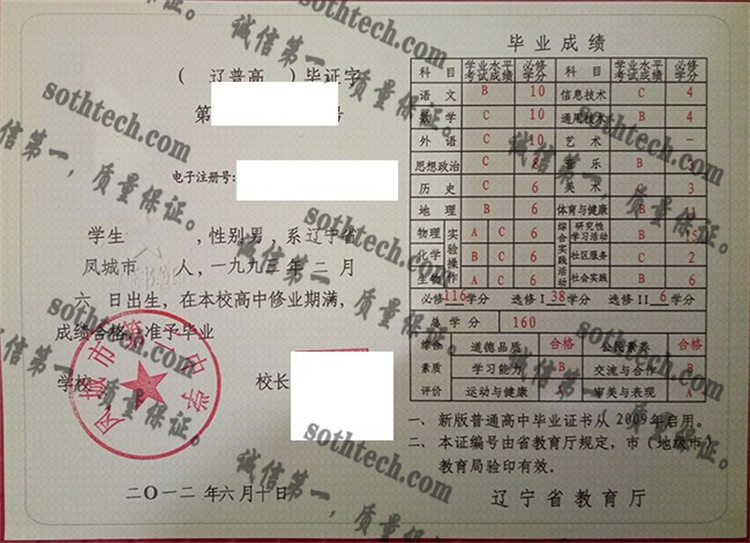 （ 辽普高 ）毕证字
第 号
电子注册号:
学生 ，性别男，系辽宁省
凤城市 人，一九九三年二月
六日出生，在本校高中修业期满，
成绩合格，准予毕业
学校 校长
凤城市第一中学
二〇一二年六月十日
毕业成绩
科目 学业水平考试成绩 必修学分 科目 学业水平考试成绩 必修学分
语文 B 10 信息技术 C 4
数学 C 10 通用技术 B 4
外语 C 10 艺术 -
思想政治 C 8 音乐 B 3
历史 C 6 美术 C 3
地理 B 6 体育与健康 B 11
物理 实验操作 A C 6 综合实践活动 研究性学习活动 B 15
化学 B C 6 社区服务 C 2
生物 A C 6 社会实践 B 6
必修 116 学分 选修I 38 学分 选修II 6 学分
总学分 160
综合素质评价 道德品质 合格 公民素养 合格
学习能力 B 交流与合作 B
运动与健康 A 审美与表现 A
一、新版普通高中毕业证书从2009年启用。
二、本证编号由省教育厅规定，市（地级市）
教育局验印有效。
辽宁省教育厅
sothtech.com
诚信第一，质量保证。